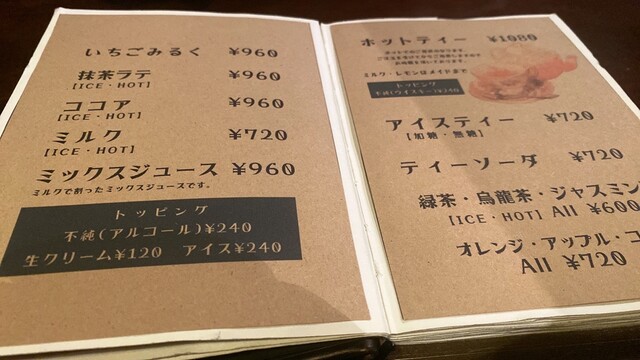 いちごみるく ¥960
抹茶ラテ ¥960
[ICE・HOT]
ココア ¥960
[ICE・HOT]
ミルク ¥720
[ICE・HOT]
ミックスジュース ¥960
ミルクで割ったミックスジュースです。
トッピング
不純(アルコール)¥240
生クリーム¥120 アイス¥240
ホットティー ¥1080
ミルク・レモンはメイドまで
トッピング
不純(ウイスキー)¥240
アイスティー ¥720
[加糖・無糖]
ティーソーダ ¥720
緑茶・烏龍茶・ジャスミン
[ICE・HOT] All ¥600
オレンジ・アップル・コ
All ¥720